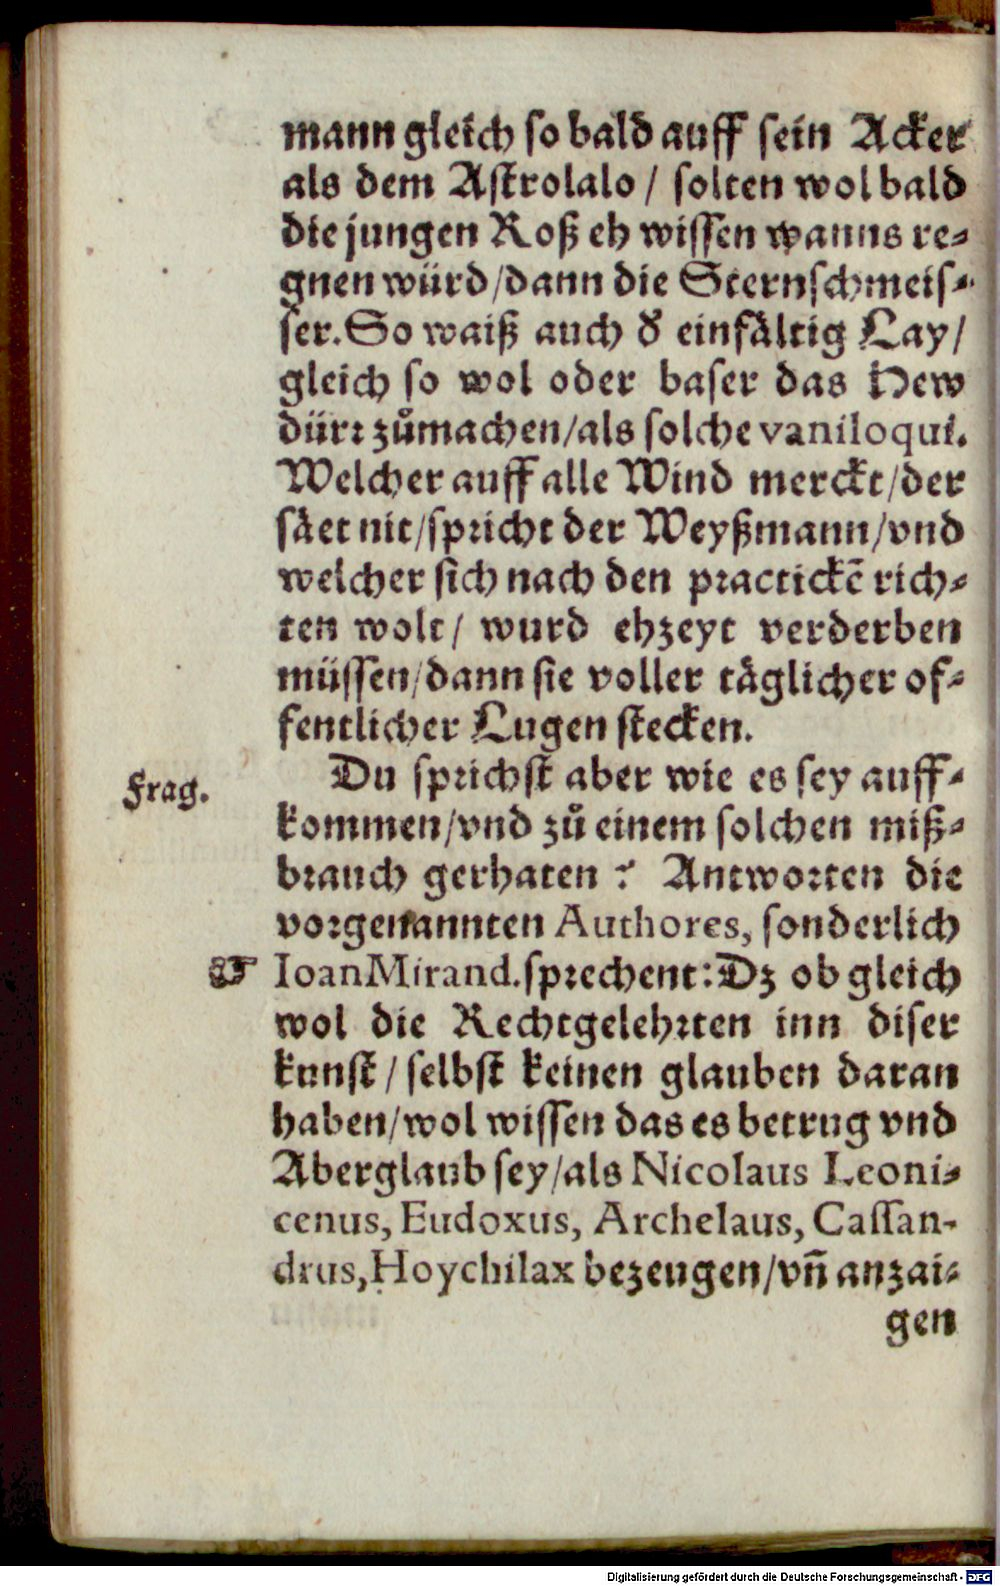 mann gleich so bald auff sein Acker
als dem Astrolalo / solten wol bald
die jungen Roß eh wissen wanns re-
gnen würd/dann die Sternschmeis-
ser. So waiß auch d̕ einfältig Lay/
gleich so wol oder baser das Hew
dürr zůmachen/als solche vaniloqui.
Welcher auff alle Wind merckt/der
säet nit/spricht der Weyßmann/vnd
welcher sich nach den practickē rich-
ten wolt/ wurd ehzeyt verderben
müssen/dann sie voller täglicher of-
fentlicher Lugen stecken.
Frag.
Du sprichst aber wie es sey auff-
kommen/vnd zů einem solchen miß-
brauch gerhaten? Antworten die
vorgenannten Authores, sonderlich
☞ Ioan Mirand. sprechent: Dz ob gleich
wol die Rechtgelehrten inn diser
kunst / selbst keinen glauben daran
haben/wol wissen das es betrug vnd
Aberglaub sey/als Nicolaus Leoni-
cenus, Eudoxus, Archelaus, Cassan-
drus, Hoychilax bezeugen/vñ anzai-
gen
Digitalisierung gefördert durch die Deutsche Forschungsgemeinschaft - DFG